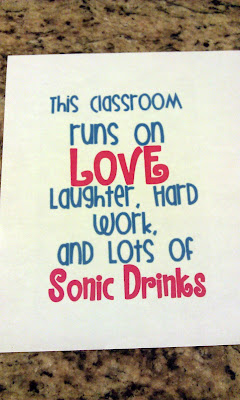 This Classroom
runs on
LOVE
Laughter, Hard
Work,
and Lots of
Sonic Drinks